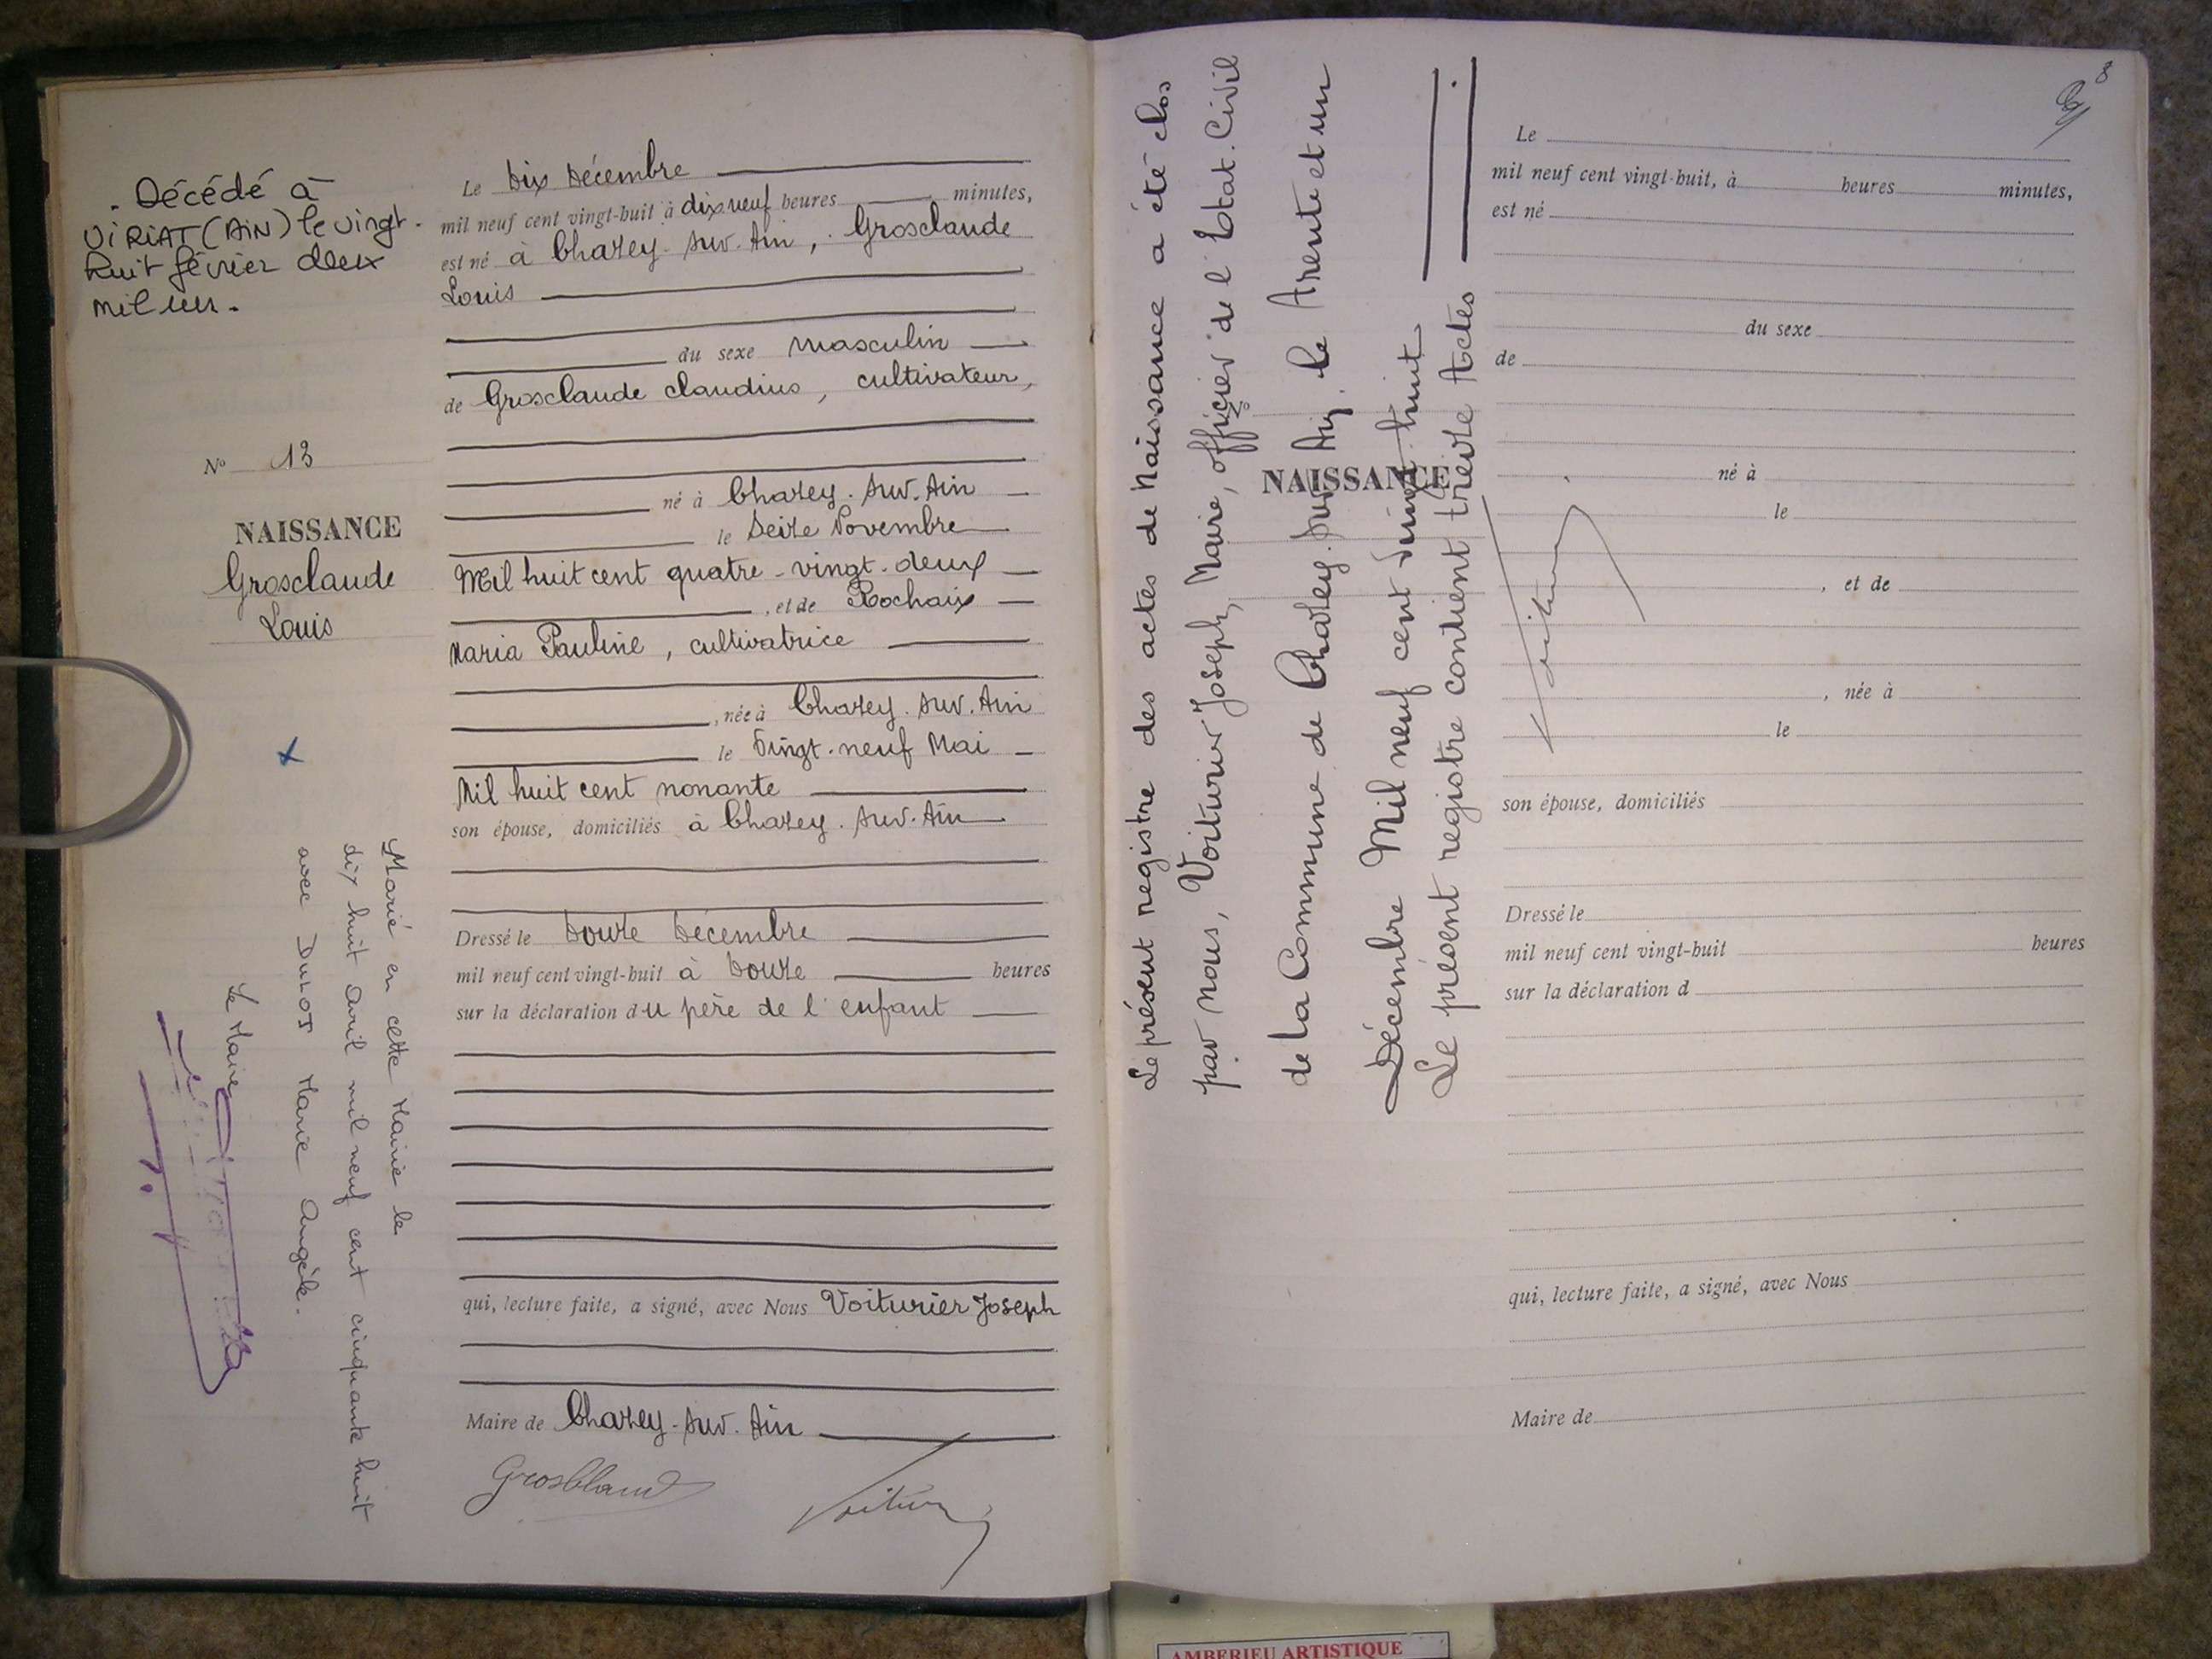 . Décédé à
ViRiAT (AiN) le vingt-
huit février deux
mil un.
N° 13
NAISSANCE
Grosclaude
Louis
Marié en cette Mairie le
dix huit avril mil neuf cent cinquante huit
avec DULOT Marie Angèle.
Le Maire
Le Dix Décembre
mil neuf cent vingt-huit à dix neuf heures minutes,
est né à Chazey-sur-Ain, Grosclaude
Louis
du sexe masculin
de Grosclaude Claudius, cultivateur,
né à Chazey-sur-Ain
le Seize Novembre
Mil huit cent quatre-vingt-deux
, et de Rochaix
Maria Pauline, cultivatrice
, née à Chazey-sur-Ain
le Vingt-neuf Mai
Mil huit cent nonante
son épouse, domiciliés à Chazey-sur-Ain
Dressé le Douze Décembre
mil neuf cent vingt-huit à Douze heures
sur la déclaration du père de l'enfant
qui, lecture faite, a signé, avec Nous Voiturier Joseph
Maire de Chazey-sur-Ain
Le présent registre des actes de Naissance a été clos
par nous, Voiturier Joseph, Maire, officier de l'Etat-Civil
de la Commune de Chazey-sur-Ain, le trente et un
Décembre Mil neuf cent vingt-huit
Le présent registre contient treize Actes
N°
NAISSANCE
8
Le
mil neuf cent vingt-huit, à heures minutes,
est né
du sexe
de
né à
le
, et de
, née à
le
son épouse, domiciliés
Dressé le
mil neuf cent vingt-huit heures
sur la déclaration d
qui, lecture faite, a signé, avec Nous
Maire de
AMBERIEU ARTISTIQUE